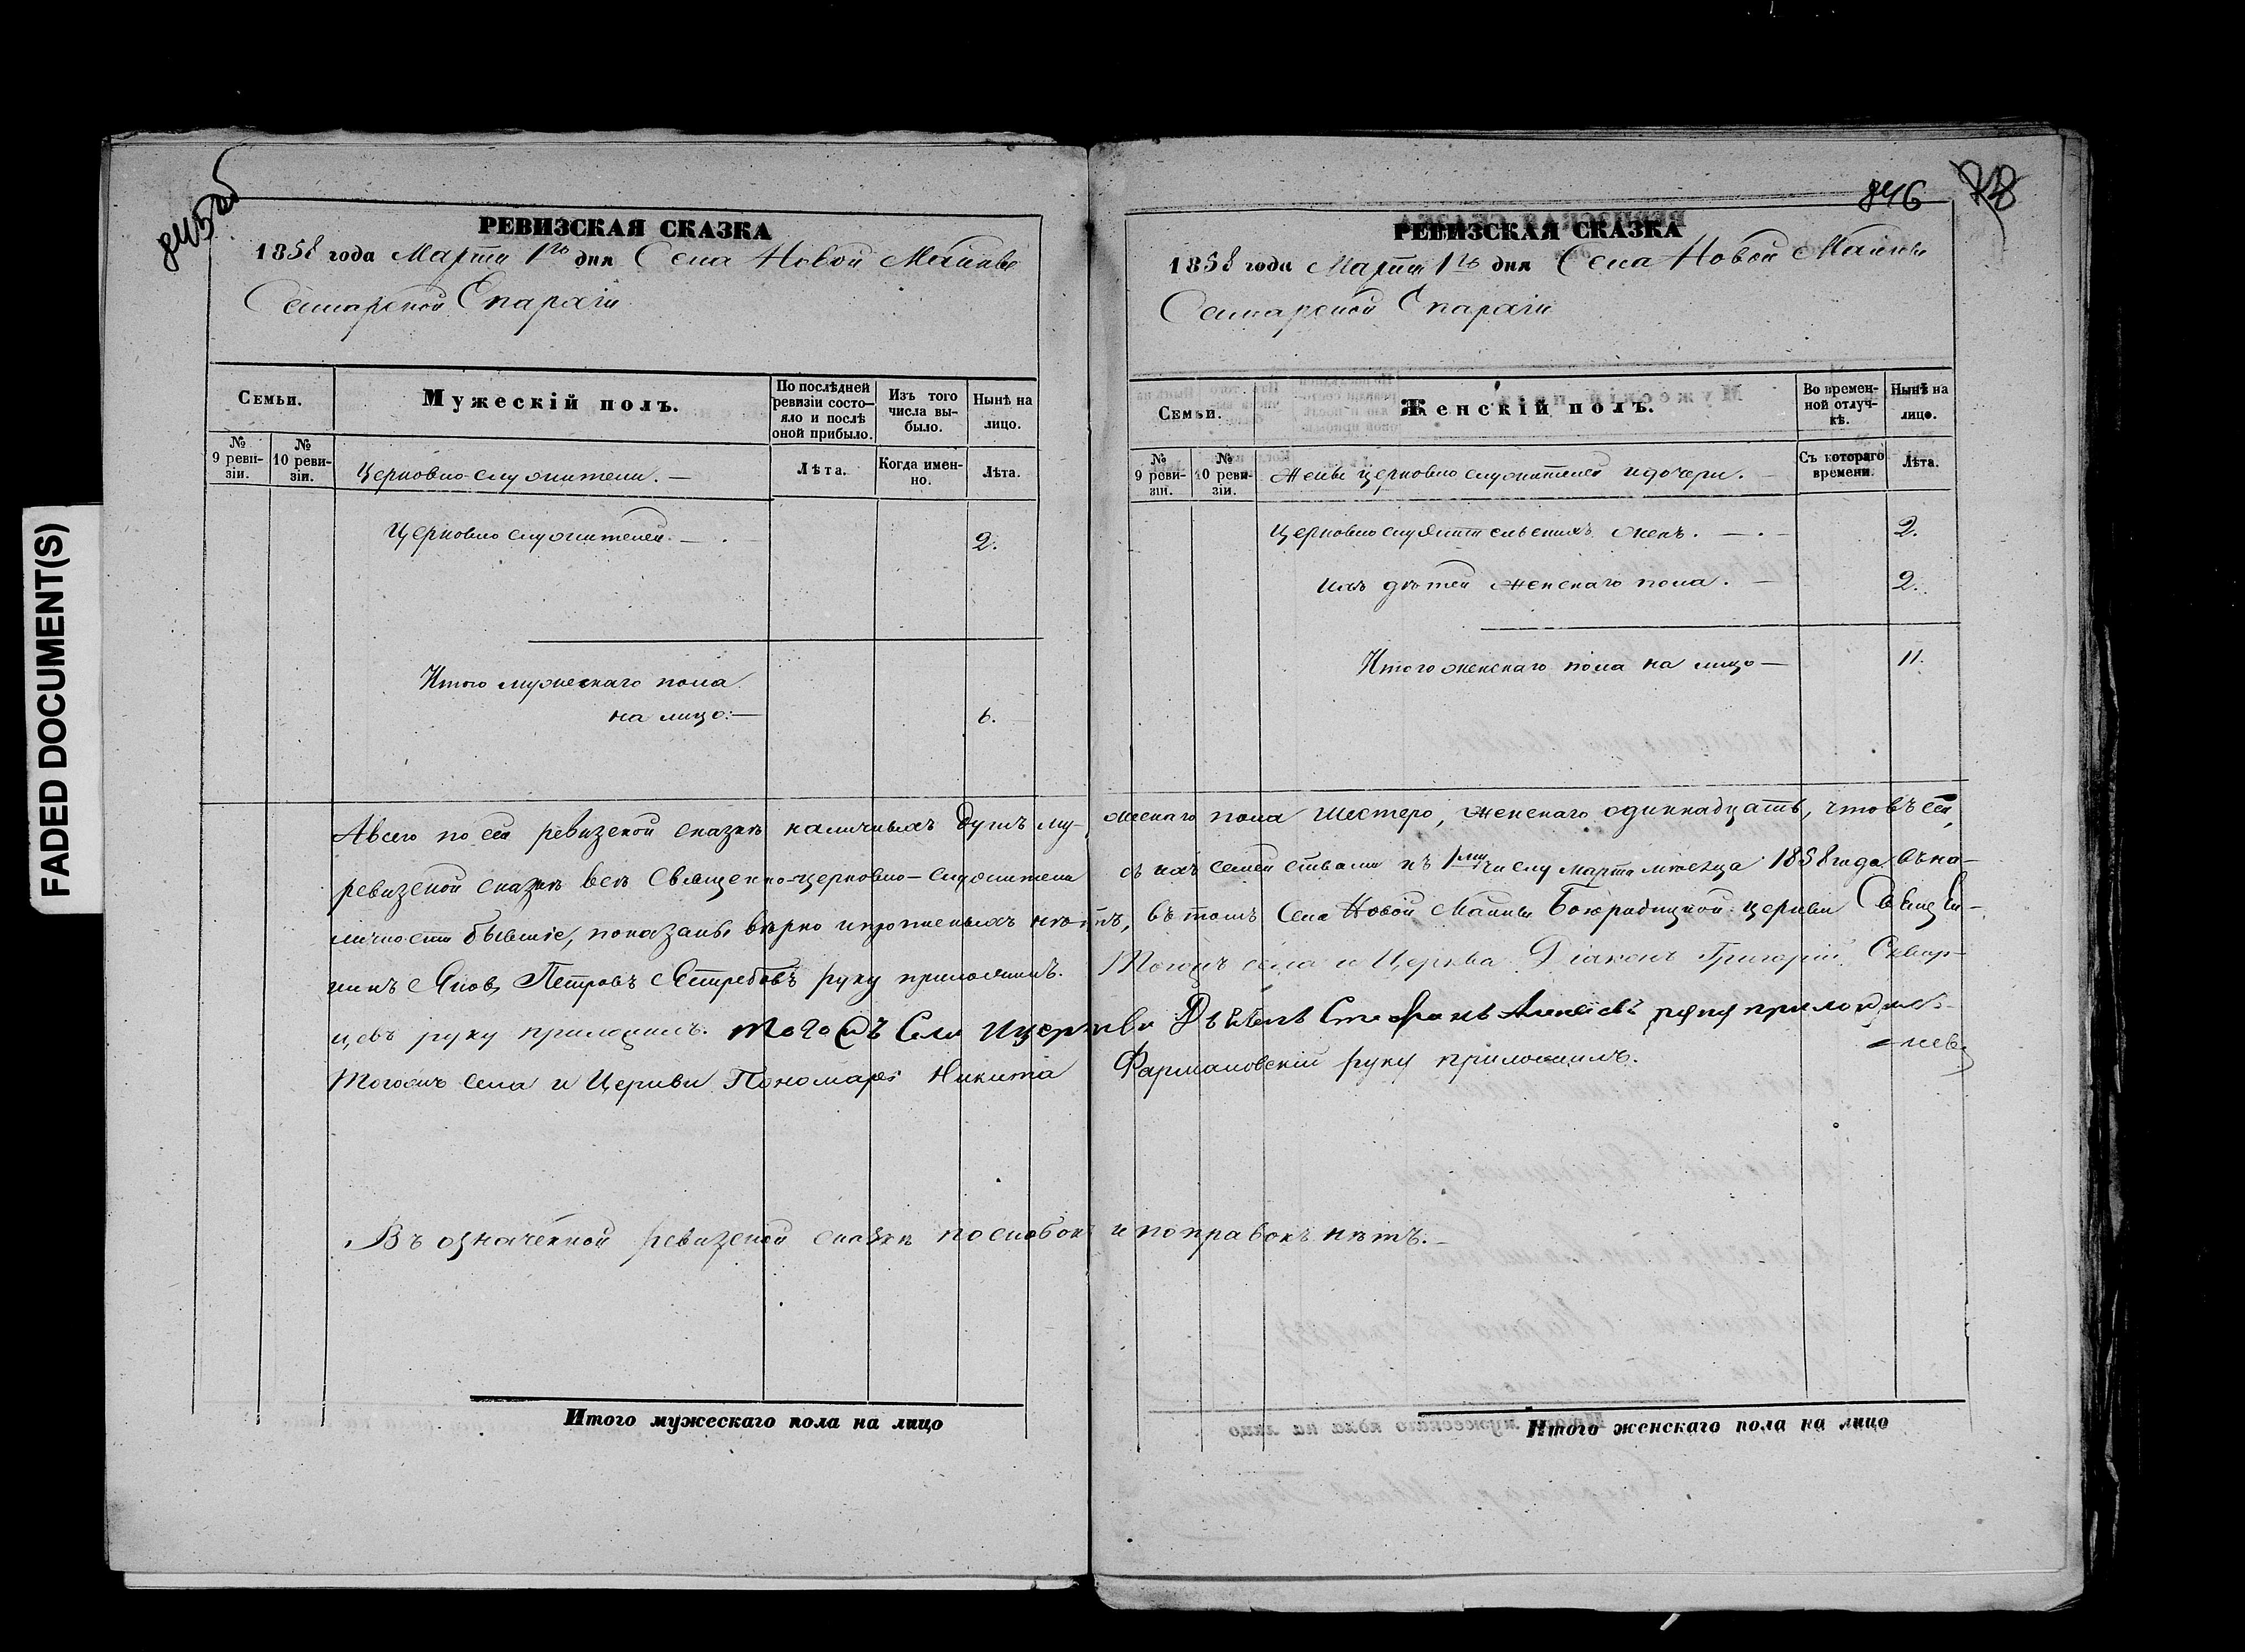 FADED DOCUMENT(S)
845об
РЕВИЗСКАЯ СКАЗКА
1858 года Марта 1го дня Села Новой Майны
Самарской Епархіи
Семьи.
Мужескій полъ.
По послѣдней ревизіи состо-
яло и послѣ оной прибыло.
Изъ того числа вы-
было.
Нынѣ на лицо.
№ 9 реви-
зіи.
№ 10 реви-
зіи.
Церковно-служители. —
Лѣта.
Когда имен-
но.
Лѣта.
Церковно служителей. — . — 2.
Итого мужескаго пола
на лицо: — 6.
846
РЕВИЗСКАЯ СКАЗКА
1858 года Марта 1го дня Села Новой Майны
Самарской Епархіи
Семьи.
Женскій полъ.
Во времен-
ной отлуч-
кѣ.
Нынѣ на лицо.
№ 9 реви-
зіи.
№ 10 реви-
зіи.
Жены церковно служителей и дочери. —
Съ котораго времени.
Лѣта.
Церковно служительскихъ женъ. — . — 2.
ихъ дѣтей женскаго пола. — 2.
Итого женскаго пола на лицо — 11.
А всего по сей ревизской сказкѣ наличныхъ душъ му- жескаго пола шестеро, женскаго одиннадцать, что въ сей,
ревизской сказкѣ всѣ священно-церковно-служители съ ихъ семействами къ 1му числу марта мѣсяца 1858 года въ на-
личности бывшіе, показаны вѣрно и прописныхъ нѣтъ, въ томъ Села Новой Майны Богородицкой церкви Священ-
никъ Яковъ Петровъ Ястребовъ руку приложилъ. Тогожъ села и Церкви Діаконъ Григорій Сквор-
цевъ руку приложилъ. Тогожъ Села и церкви Дьячекъ Стефанъ Алексѣевъ руку приложилъ
Тогожъ села и Церкви Пономарь Никита Фармаковскій руку приложилъ.
Въ означенной ревизской сказкѣ поскобокъ и поправокъ нѣтъ. —
Итого мужескаго пола на лицо
Итого женскаго пола на лицо